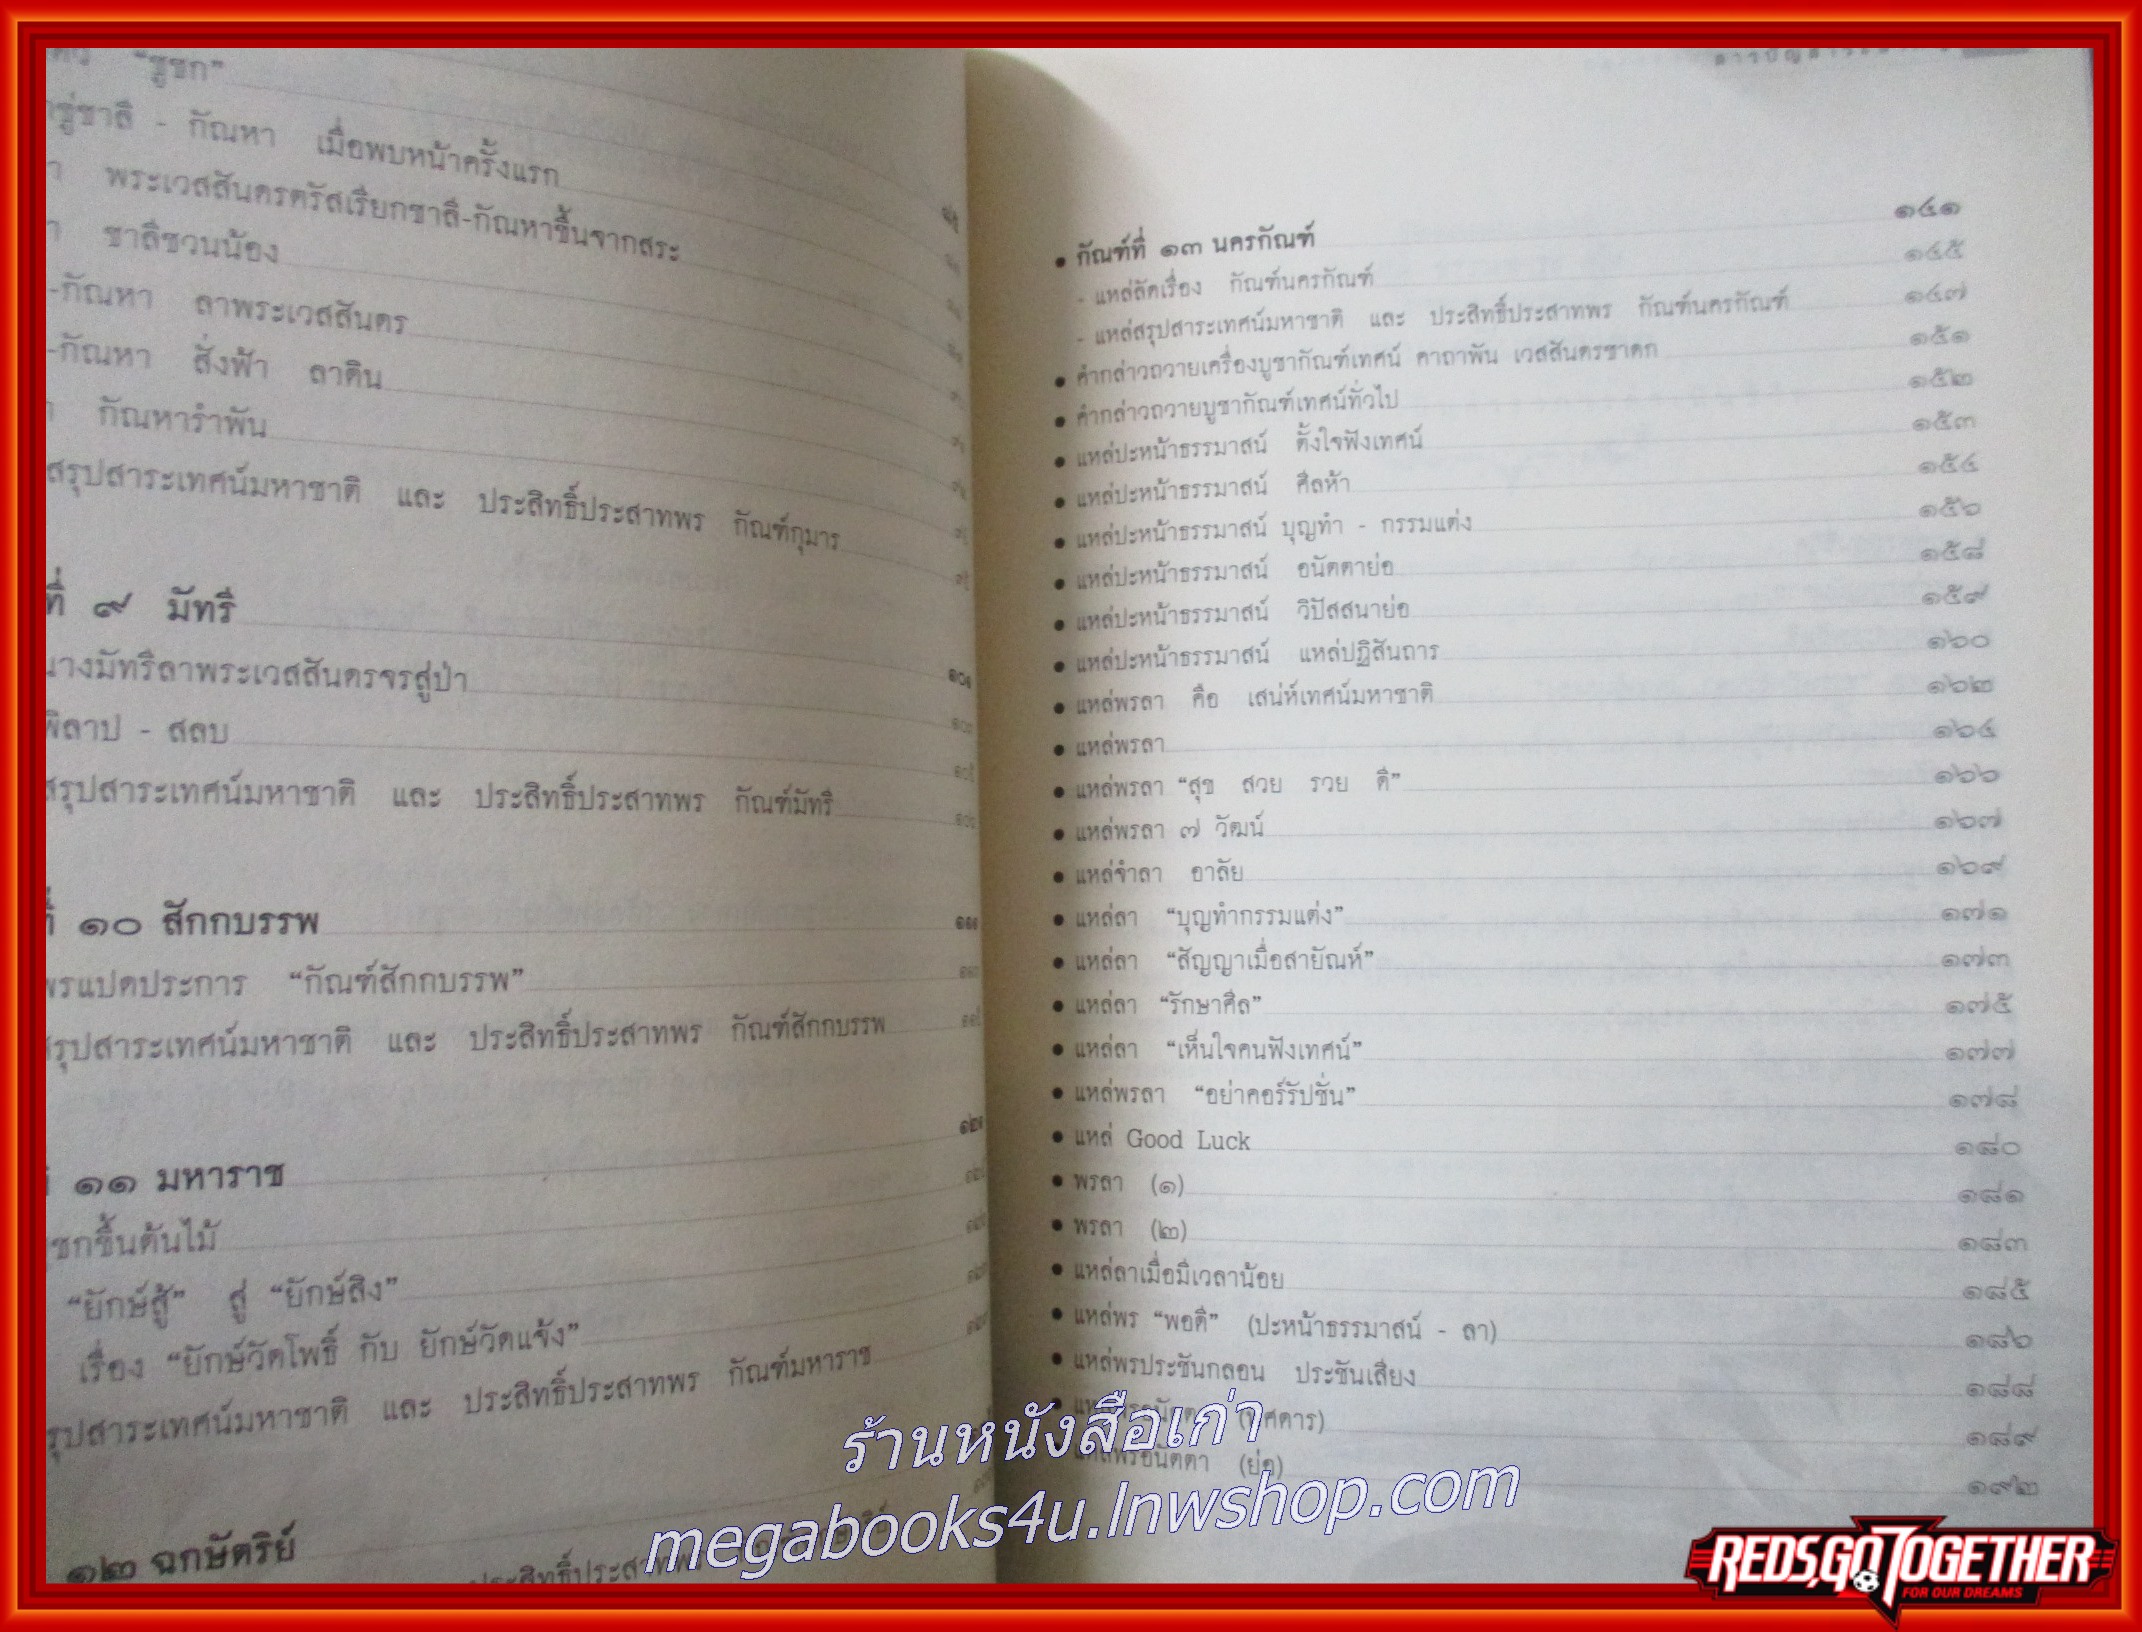 "ชูชก"
ชาลี - กัณหา เมื่อพบหน้าครั้งแรก
พระเวสสันดรตรัสเรียกชาลี-กัณหาขึ้นจากสระ
ชาลีชวนน้อง
-กัณหา ลาพระเวสสันดร
-กัณหา สั่งฟ้า ลาดิน
กัณหารำพัน
สรุปสาระเทศน์มหาชาติ และ ประสิทธิ์ประสาทพร กัณฑ์กุมาร
ที่ ๙ มัทรี
นางมัทรีลาพระเวสสันดรจรสู่ป่า
พิลาป - สลบ
สรุปสาระเทศน์มหาชาติ และ ประสิทธิ์ประสาทพร กัณฑ์มัทรี
ที่ ๑๐ สักกบรรพ
พรแปดประการ "กัณฑ์สักกบรรพ"
สรุปสาระเทศน์มหาชาติ และ ประสิทธิ์ประสาทพร กัณฑ์สักกบรรพ
๑๑ มหาราช
ชกขึ้นต้นไม้
"ยักษ์สู้" สู่ "ยักษ์สิง"
เรื่อง "ยักษ์วัดโพธิ์ กับ ยักษ์วัดแจ้ง"
รุปสาระเทศน์มหาชาติ และ ประสิทธิ์ประสาทพร กัณฑ์มหาราช
๑๒ ฉกษัตริย์
ประสิทธิ์ประสาทพร
• กัณฑ์ที่ ๑๓ นครกัณฑ์ ๑๔๑
- แหล่ลัดเรื่อง กัณฑ์นครกัณฑ์ ๑๔๕
- แหล่สรุปสาระเทศน์มหาชาติ และ ประสิทธิ์ประสาทพร กัณฑ์นครกัณฑ์ ๑๔๗
• คำกล่าวถวายเครื่องบูชากัณฑ์เทศน์ คาถาพัน เวสสันดรชาดก ๑๕๑
• คำกล่าวถวายบูชากัณฑ์เทศน์ทั่วไป ๑๕๒
• แหล่ปะหน้าธรรมาสน์ ตั้งใจฟังเทศน์ ๑๕๓
• แหล่ปะหน้าธรรมาสน์ ศีลห้า ๑๕๔
• แหล่ปะหน้าธรรมาสน์ บุญทำ - กรรมแต่ง ๑๕๖
• แหล่ปะหน้าธรรมาสน์ อนัตตาย่อ ๑๕๘
• แหล่ปะหน้าธรรมาสน์ วิปัสสนาย่อ ๑๕๙
• แหล่ปะหน้าธรรมาสน์ แหล่ปฏิสันถาร ๑๖๐
• แหล่พรลา คือ เสน่ห์เทศน์มหาชาติ ๑๖๒
• แหล่พรลา ๑๖๔
• แหล่พรลา "สุข สวย รวย ดี" ๑๖๖
• แหล่พรลา ๗ วัฒน์ ๑๖๗
• แหล่จำลา อาลัย ๑๖๙
• แหล่ลา "บุญทำกรรมแต่ง" ๑๗๑
• แหล่ลา "สัญญาเมื่อสายัณห์" ๑๗๓
• แหล่ลา "รักษาศีล" ๑๗๕
• แหล่ลา "เห็นใจคนฟังเทศน์" ๑๗๗
• แหล่พรลา "อย่าคอร์รัปชั่น" ๑๗๘
• แหล่ Good Luck ๑๘๐
• พรลา (๑) ๑๘๑
• พรลา (๒) ๑๘๓
• แหล่ลาเมื่อมีเวลาน้อย ๑๘๕
• แหล่พร "พอดี" (ปะหน้าธรรมาสน์ - ลา) ๑๘๖
• แหล่พรประชันกลอน ประชันเสียง ๑๘๘
(พิศดาร) ๑๘๙
แหล่พรอนัตตา (ย่อ) ๑๙๒
ร้านหนังสือเก่า
megabooks4u.lnwshop.com
REDS, GO TOGETHER
FOR OUR DREAMS